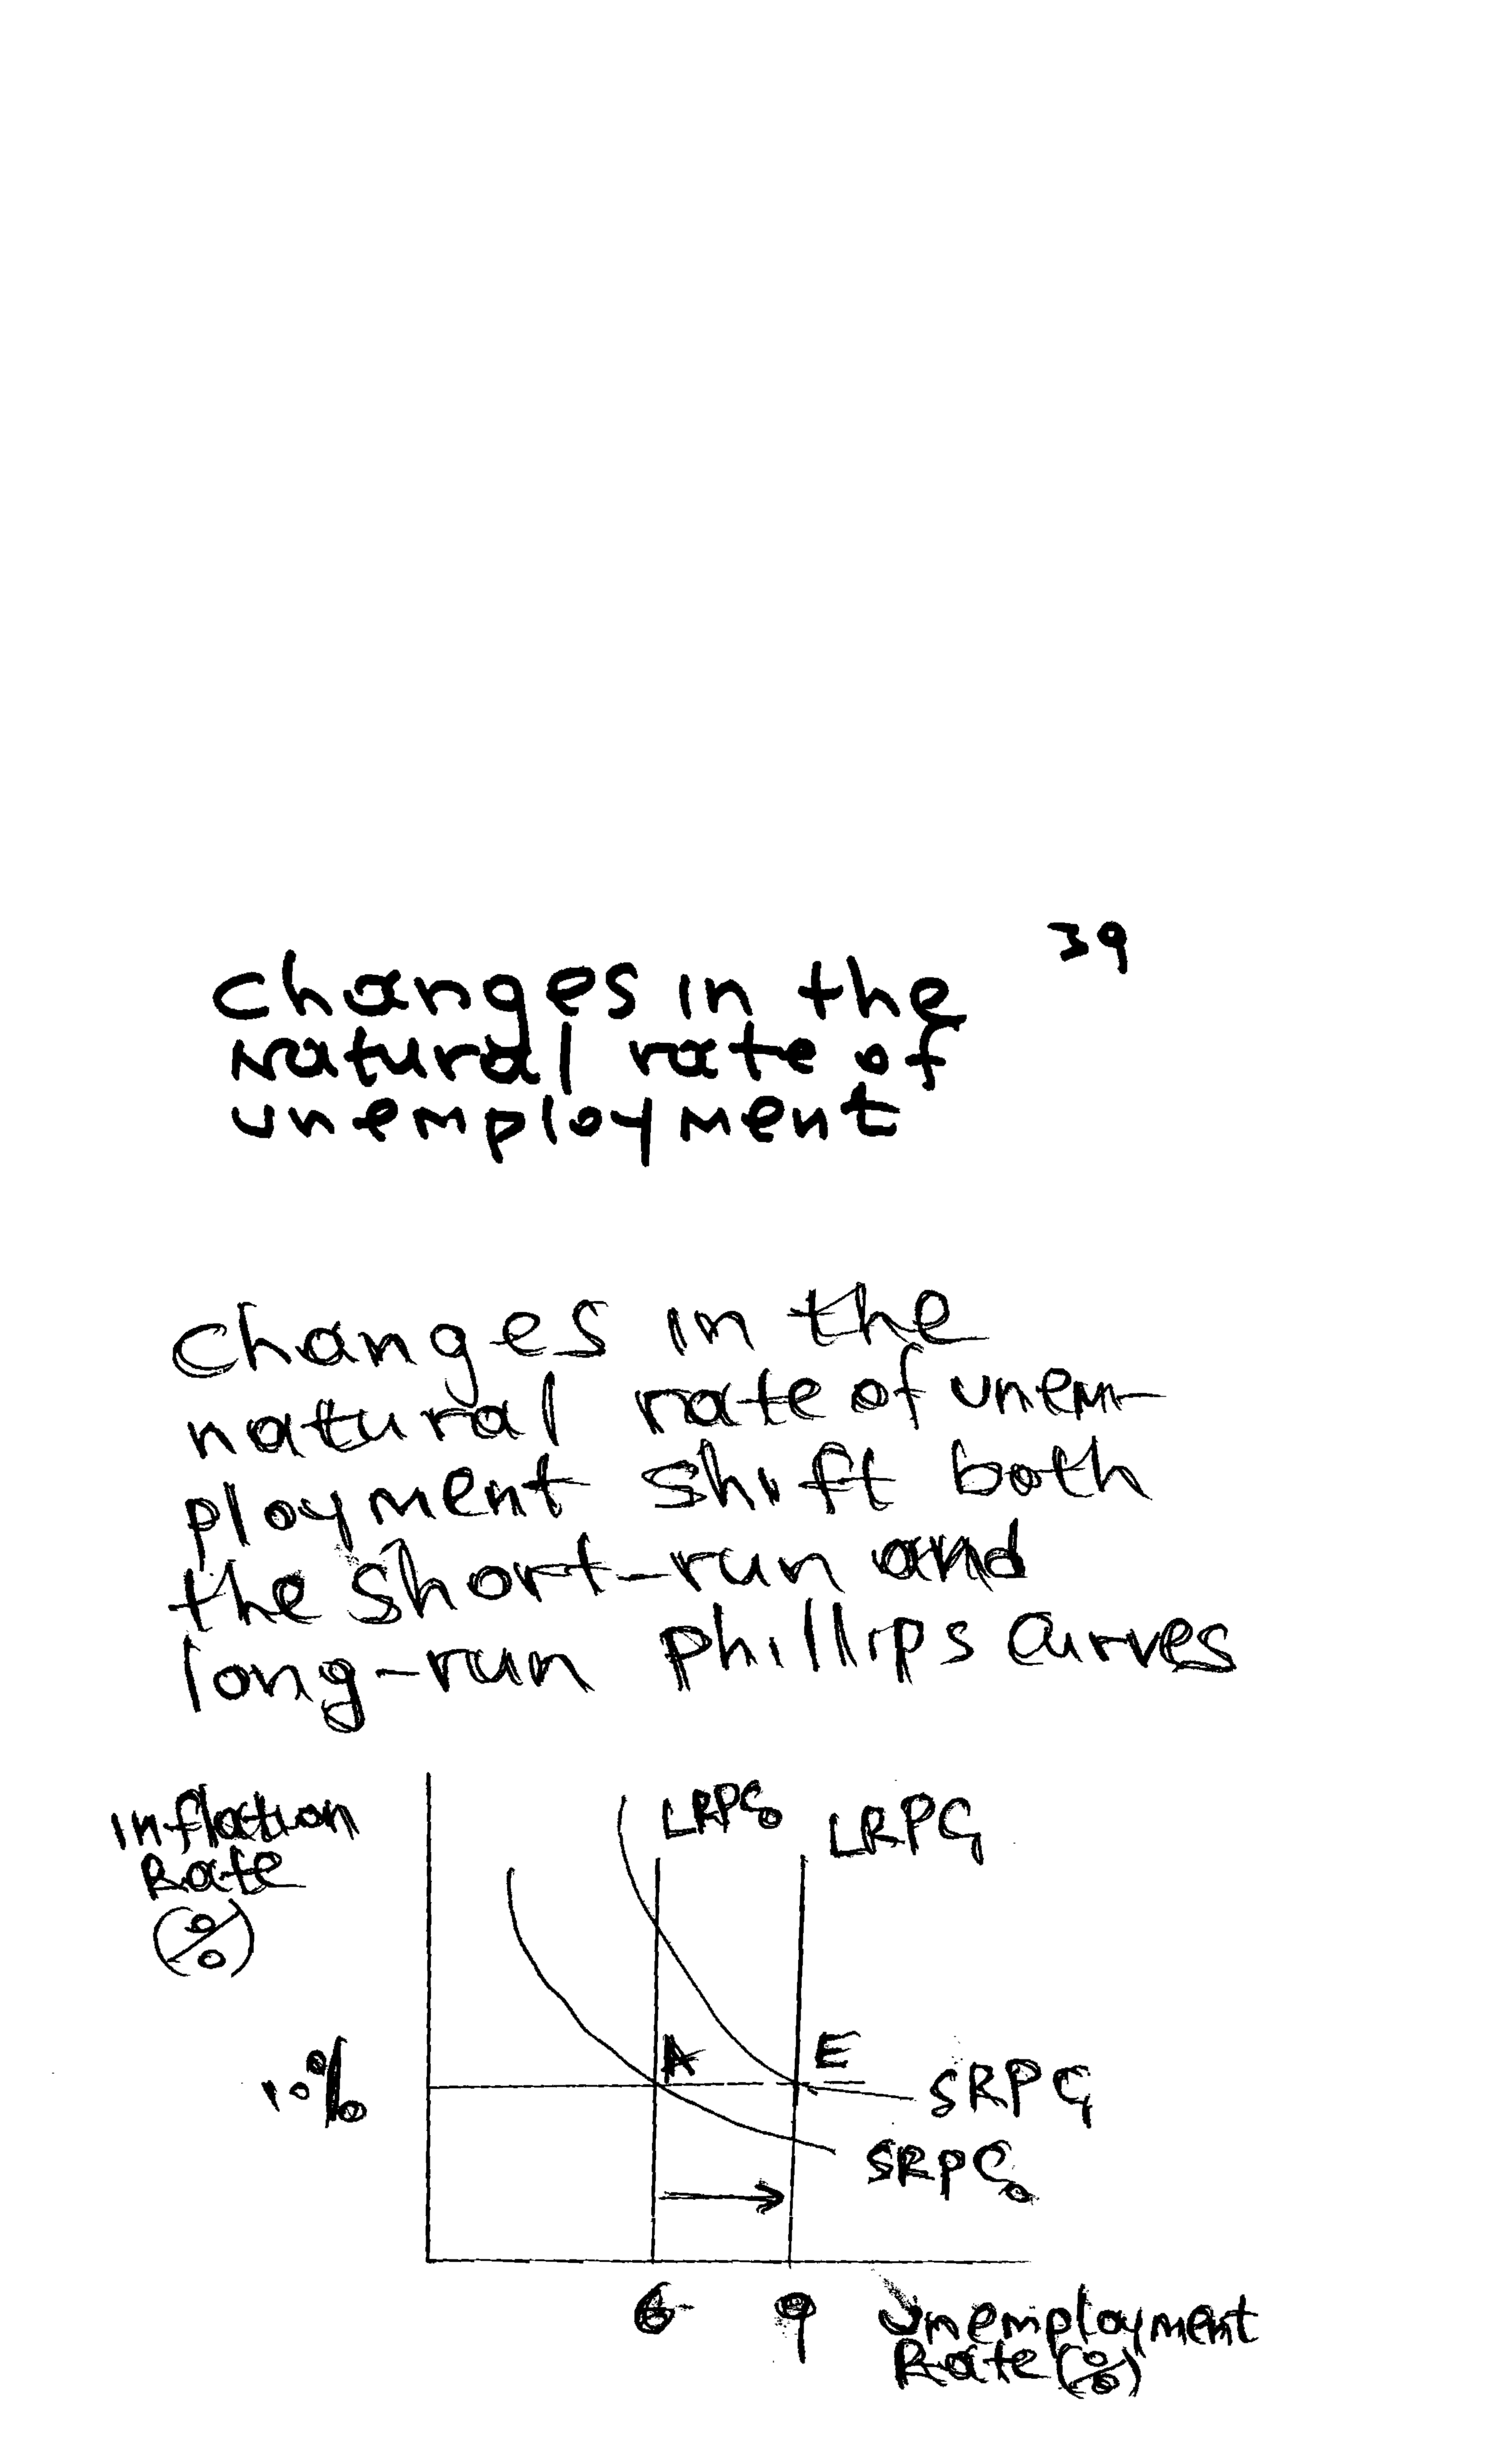 39
Changes in the
Natural rate of
unemployment
Changes in the
natural rate of unem-
ployment shift both
the short-run and
long-run phillips curves
Inflation
Rate
(%)
LRPC₀
LRPC₁
A
E
10%
SRPC₁
SRPC₀
6
9
Unemployment
Rate (%)